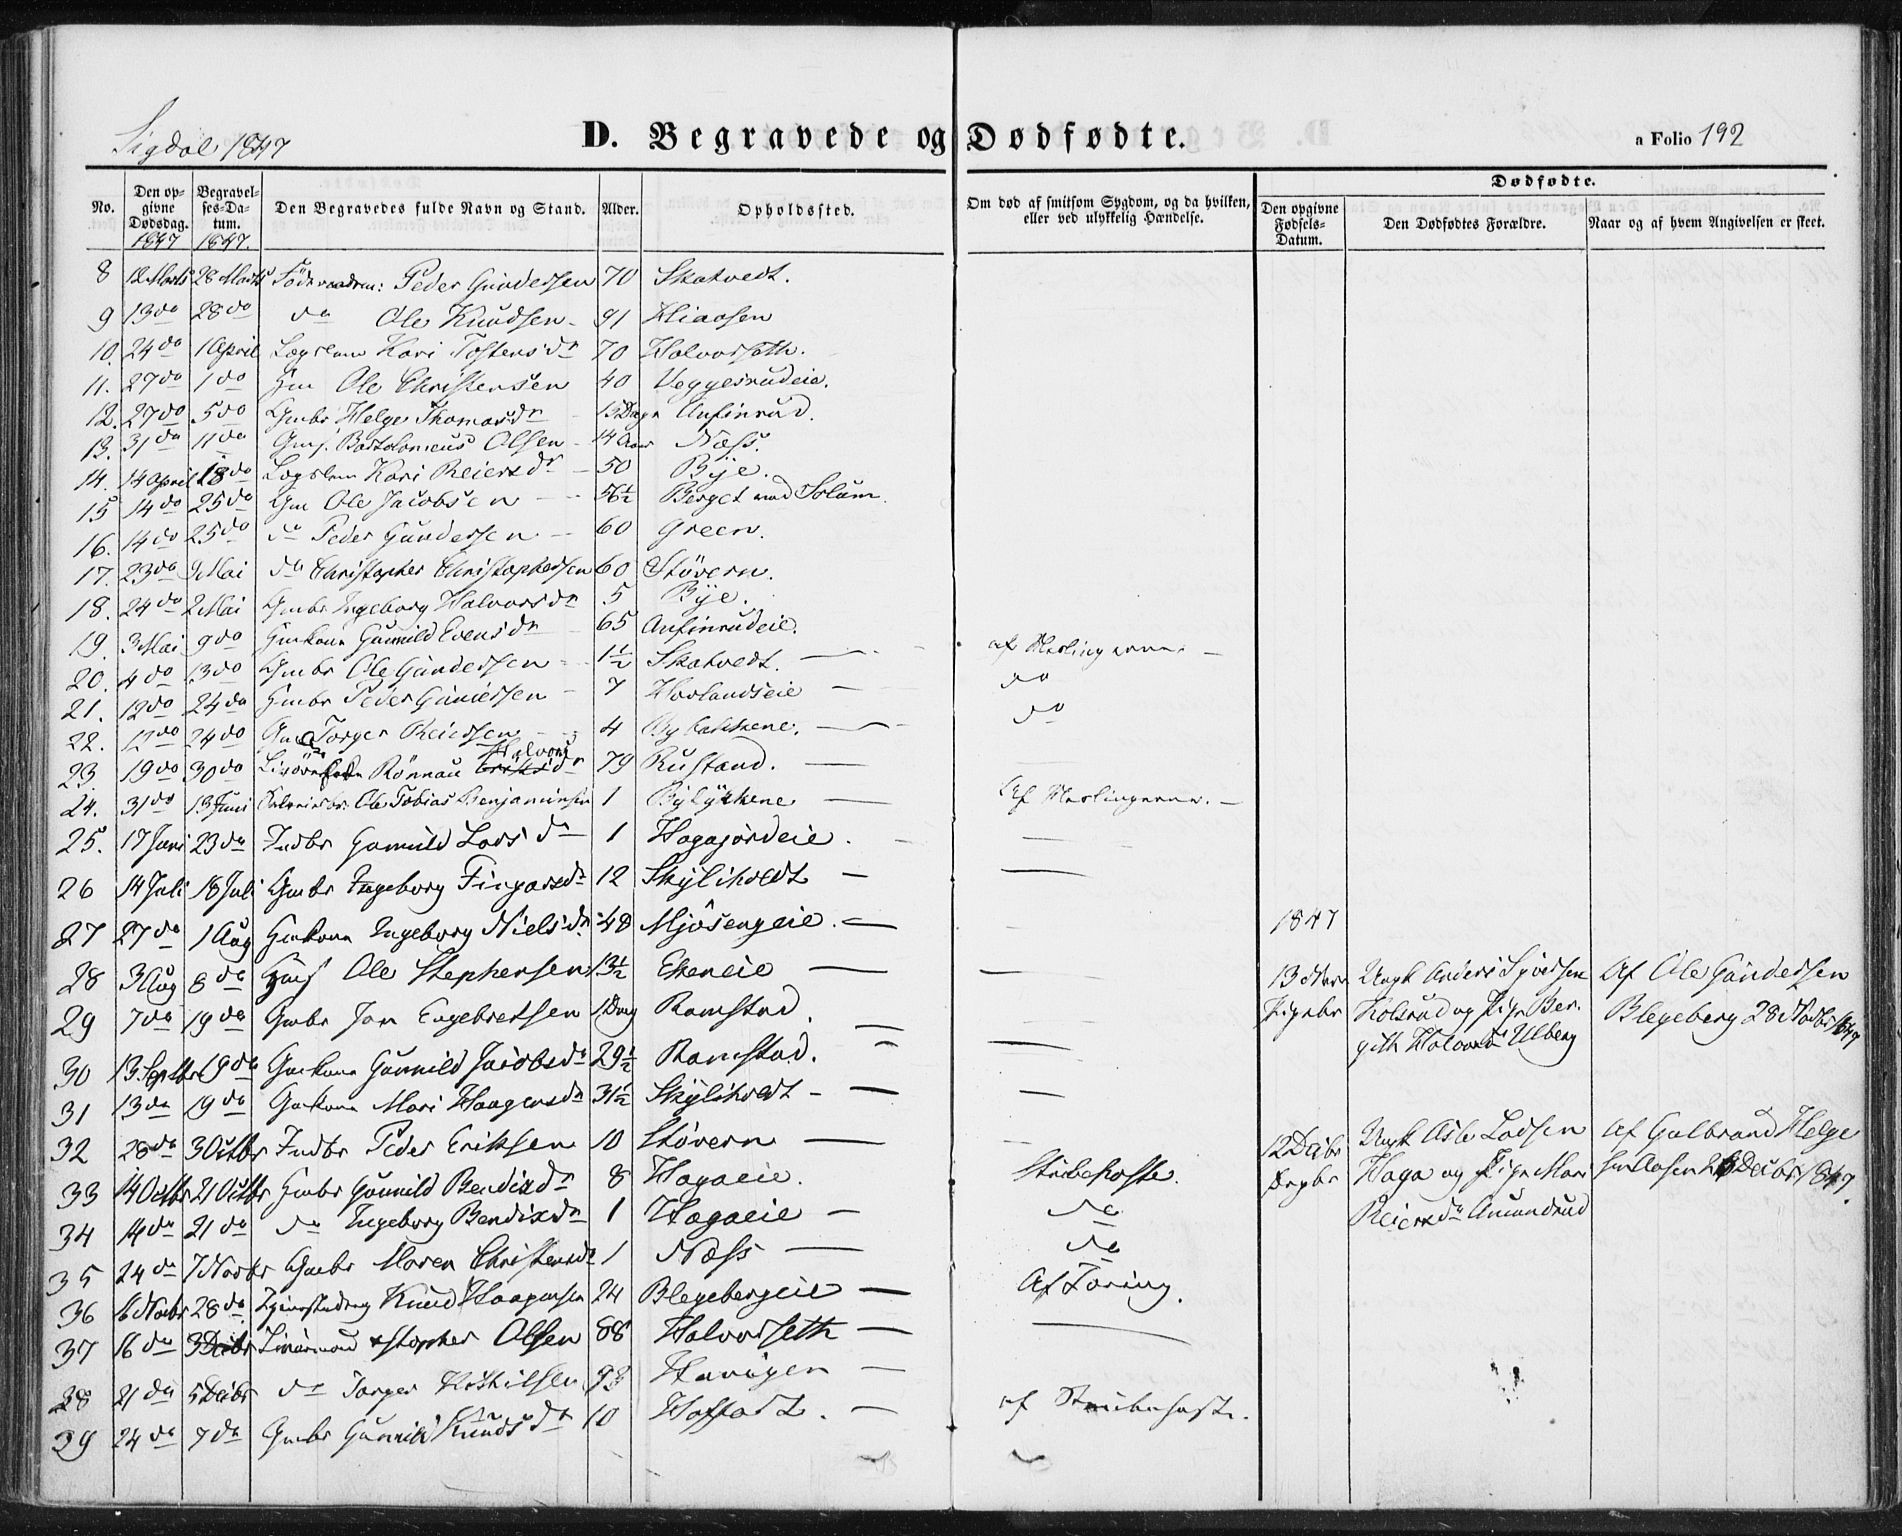 Sigdal 1847
D. Begravede og Dødfødte.
a Folio 192
No.
Den opgivne Dødsdag. 1847
Begravelses-Datum. 1847.
Den Begravedes fulde Navn og Stand.
Alder.
Opholdssted.
Om død af smitsom Sygdom, og da hvilken, eller ved ulykkelig Hændelse.
Dødfødte.
Den opgivne Fødsels-Datum.
Den Dødfødtes Forældre.
Naar og af hvem Angivelsen er skeet.
8 12 Marts 28 Marts Peder Gundersen 70 Skatvedt.
9 13 do 28 do do Ole Knudsen 91 Kliaasen
10. 24 do 1 April Lægslem Kari Tostensdr 70 Halvorseth.
11. 27 do 1 do Gm Ole Christensen 40 Veggesrudeie.
12. 27 do 5 do Gmbr Helge Thomasdr 13 Dage Anfinrud.
13. 31 do 11 do Gmf. Bartolomeus Olsen 14 Aar Næss.
14. 14 April 18 do Lægslem Kari Reiersdr 50 Bye.
15 14 do 25 do Gm Ole Jacobsen 56½ Berget ved Solum.
16. 14 do 25 do do Peder Gundersen 60 Green.
17. 23 do 9 Mai do Christopher Christophersen 60 Støvern.
18. 24 do 2 Mai Gmbr Ingeborg Halvorsdr 5 Bye.
19. 3 Mai 9 do Hmkone Gunnild Evensdr 65 Anfinrudeie.
20. 4 do 13 do Gmbr Ole Gundersen 1½ Skatvedt. — af Meslingerne. —
21. 12 do 24 do Hmbr Peder 7 Hovlandseie — do
22. 12 do 24 do Torger Reiersen 4 — do
23. 19 do 30 do Rønnau Halvorsdr 79 Rustand. —
24. 31 do 13 Juni Ole Tobias Benjaminsen 1 — Af Meslingerne. —
25. 17 Juni 23 do Indbr Gunnild Larsdr 1 Hagajordeie. —
26 14 Juli 18 Juli Gmbr Ingeborg Fingarsdr 12 Skylihvedt —
27 27 do 1 Aug Hmkone Ingeborg Nielsdr 48 Mjøsengeie. —
28 3 Aug 8 do Ole Stephensen 13½ Ekeneie —
29 7 do 19 do Gmbr Jon Engebretsen 1 Dag Ramstad.
30 13 Septbr 19 do Gmkone Gunnild Jacobsdr 29½ Ramstad.
31 13 do 19 do Gmkone Mari Haagensdr 31½ Skylihvedt —
32 28 do 3 Octbr Indbr Peder Eriksen 10 Støvern —
33 14 Octbr 21 Octbr Hmbr Gunnild Bendixdr 8 Hagaeie. Strubehoste.
34 14 do 21 do do Ingeborg Bendixdr 1 Hagaeie — do
35 24 do 7 Novbr Gmbr Maren Christensdr 1 Næss — do
36 6 Novbr 28 do Knud Haagensen 24 Blegebergeie — Af Tæring.
37 16 do 3 Decbr Xstopher Olsen 88 Halvorseth —
38 21 do 5 Decbr do Torger Kittilsen 93 Haugen —
39 24 do 7 do Gmbr Gunnild Knudsdr 10 Hoffart. — af Strubehoste.
1847
13 Novbr Pigebr
Ungk Anders Syversen
Kolsrud og Pige Ber-
gith Halvorsdr Ulberg
Af Ole Gundersen
Blegeberg 28 Novbr 1847
12 Decbr
Ungk Asle Ladsen
Haga og Pige Mari
Reiersdr Amundrud
Af Gulbrand Helge
sen Aasen 26 Decbr 1847.